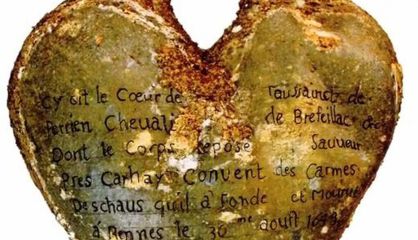 Cy git le Cœur de Toussainct de
Perrien Chevali de Brefeillac
Dont le Corps Repose a Sauveur
Pres Carhay Convent des Carmes
Deschaus quil a Fondé et Mourut
à Rennes le 30me aoust 1649